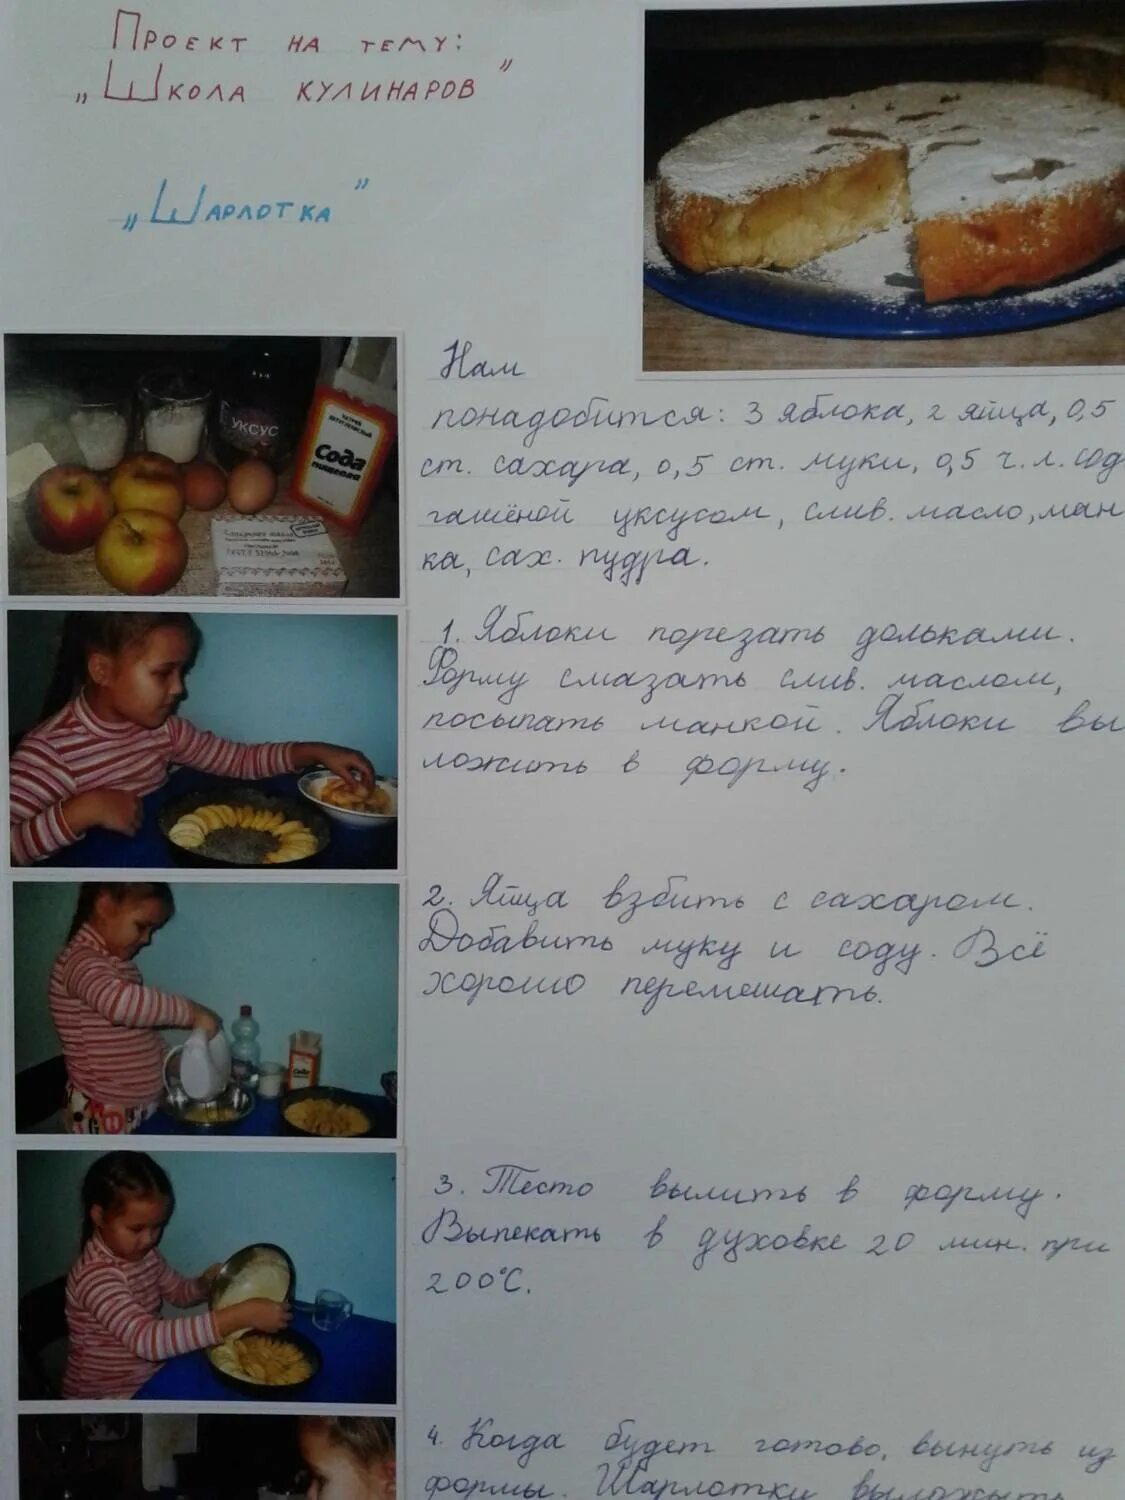 Проект на тему:
„Школа кулинаров”
„Шарлотка”
уксус
Сода
пищевая
Нам
понадобится: 3 яблока, 2 яйца, 0,5
ст. сахара, 0,5 ст. муки, 0,5 ч. л. сод
гашёной уксусом, слив. масло, ман
ка, сах. пудра.
1. Яблоки порезать дольками.
Форму смазать слив. маслом,
посыпать манкой. Яблоки вы
ложить в форму.
2. Яйца взбить с сахаром.
Добавить муку и соду. Всё
хорошо перемешать.
Сода
3. Тесто вылить в форму.
Выпекать в духовке 20 мин. при
200°С.
4. Когда будет готово, вынуть из
формы. Шарлотку выложить